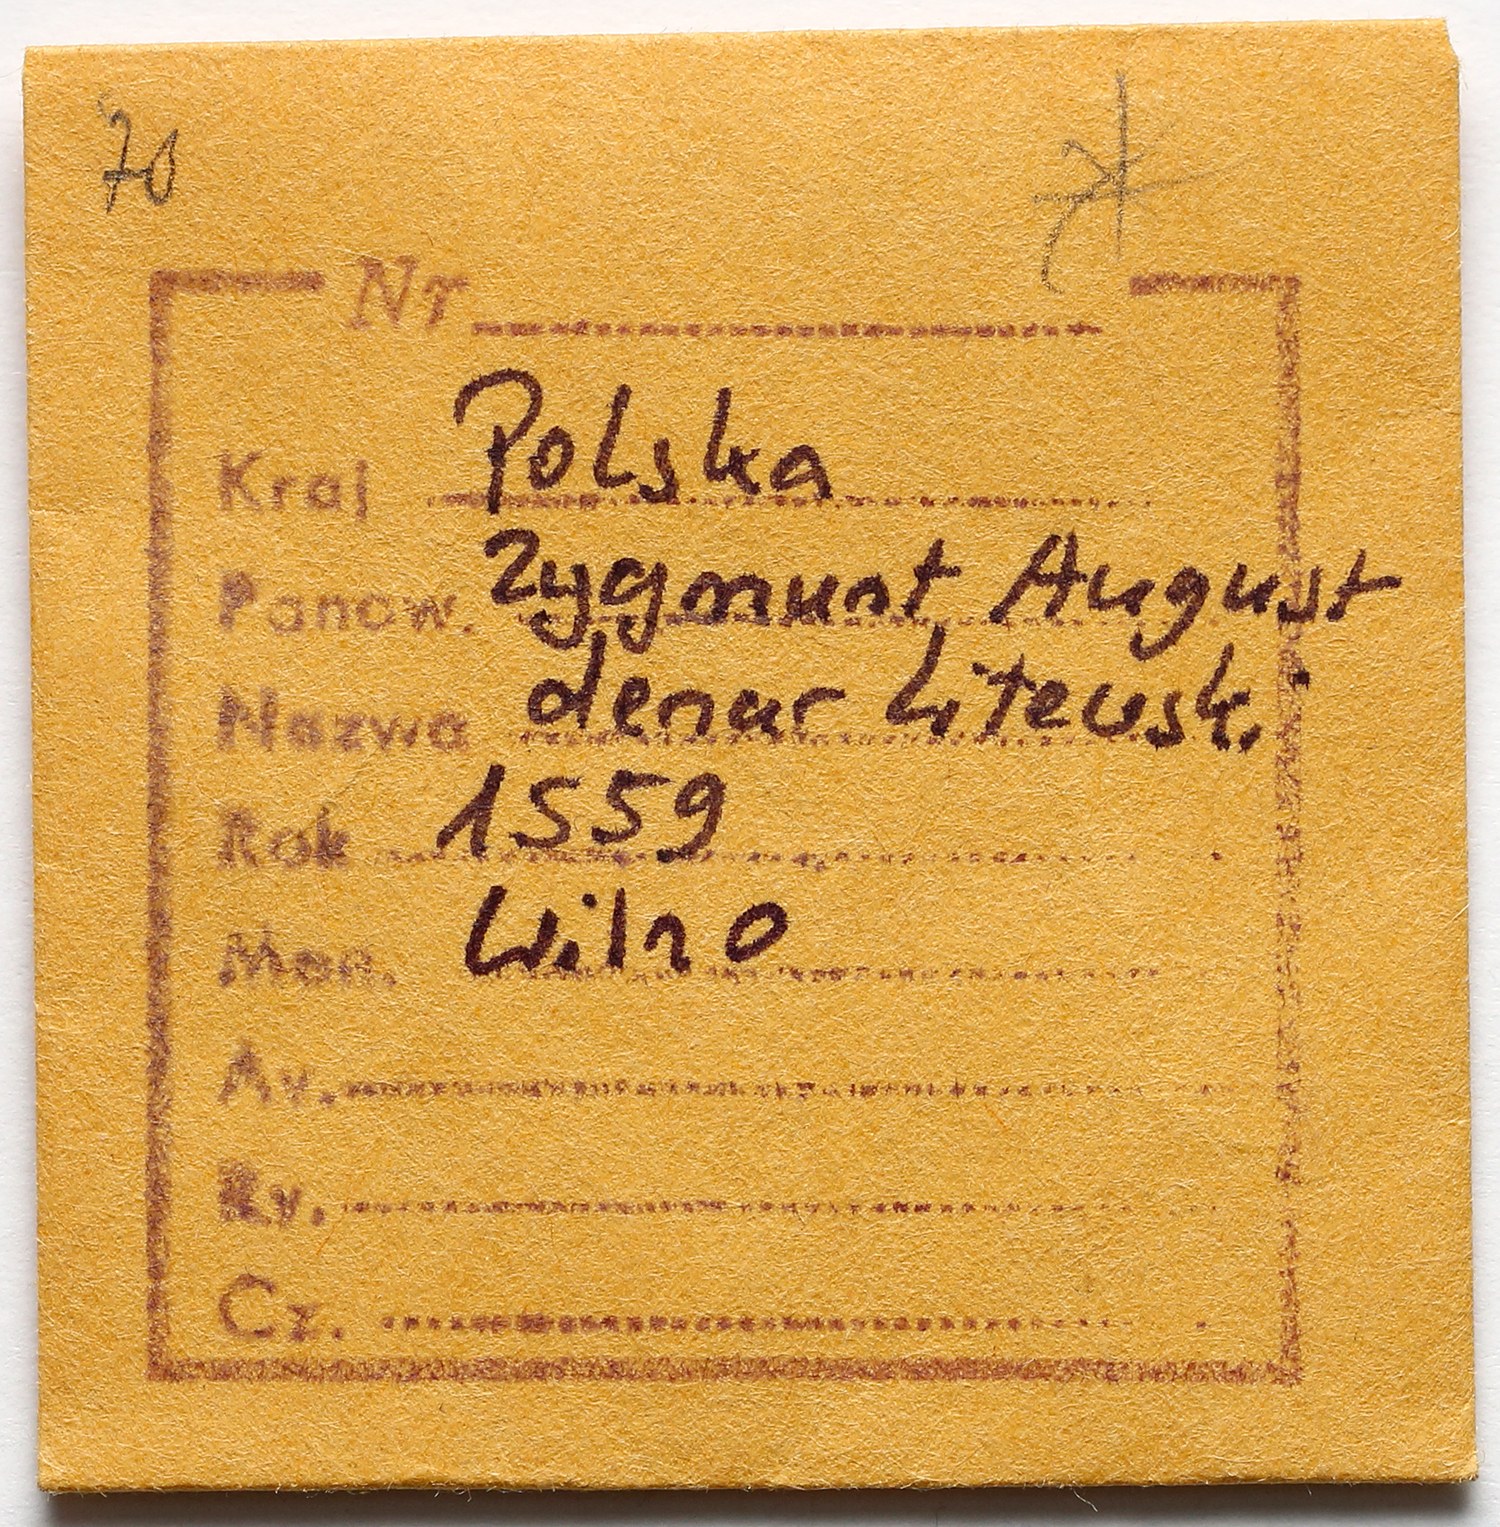 70
Nr
Kraj Polska
Panow. Zygmunt August
Nazwa denar Litewski
Rok 1559
Men. Wilno
Av.
Rv.
Cz.